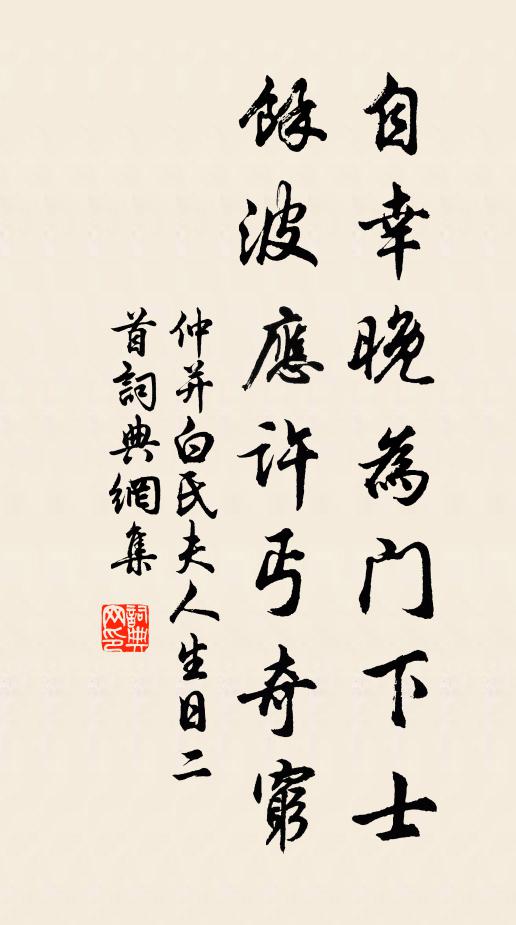 自幸晚為門下士
餘波應許丐奇窮
仲并白氏夫人生日二
首詞典網集
詞典
网印